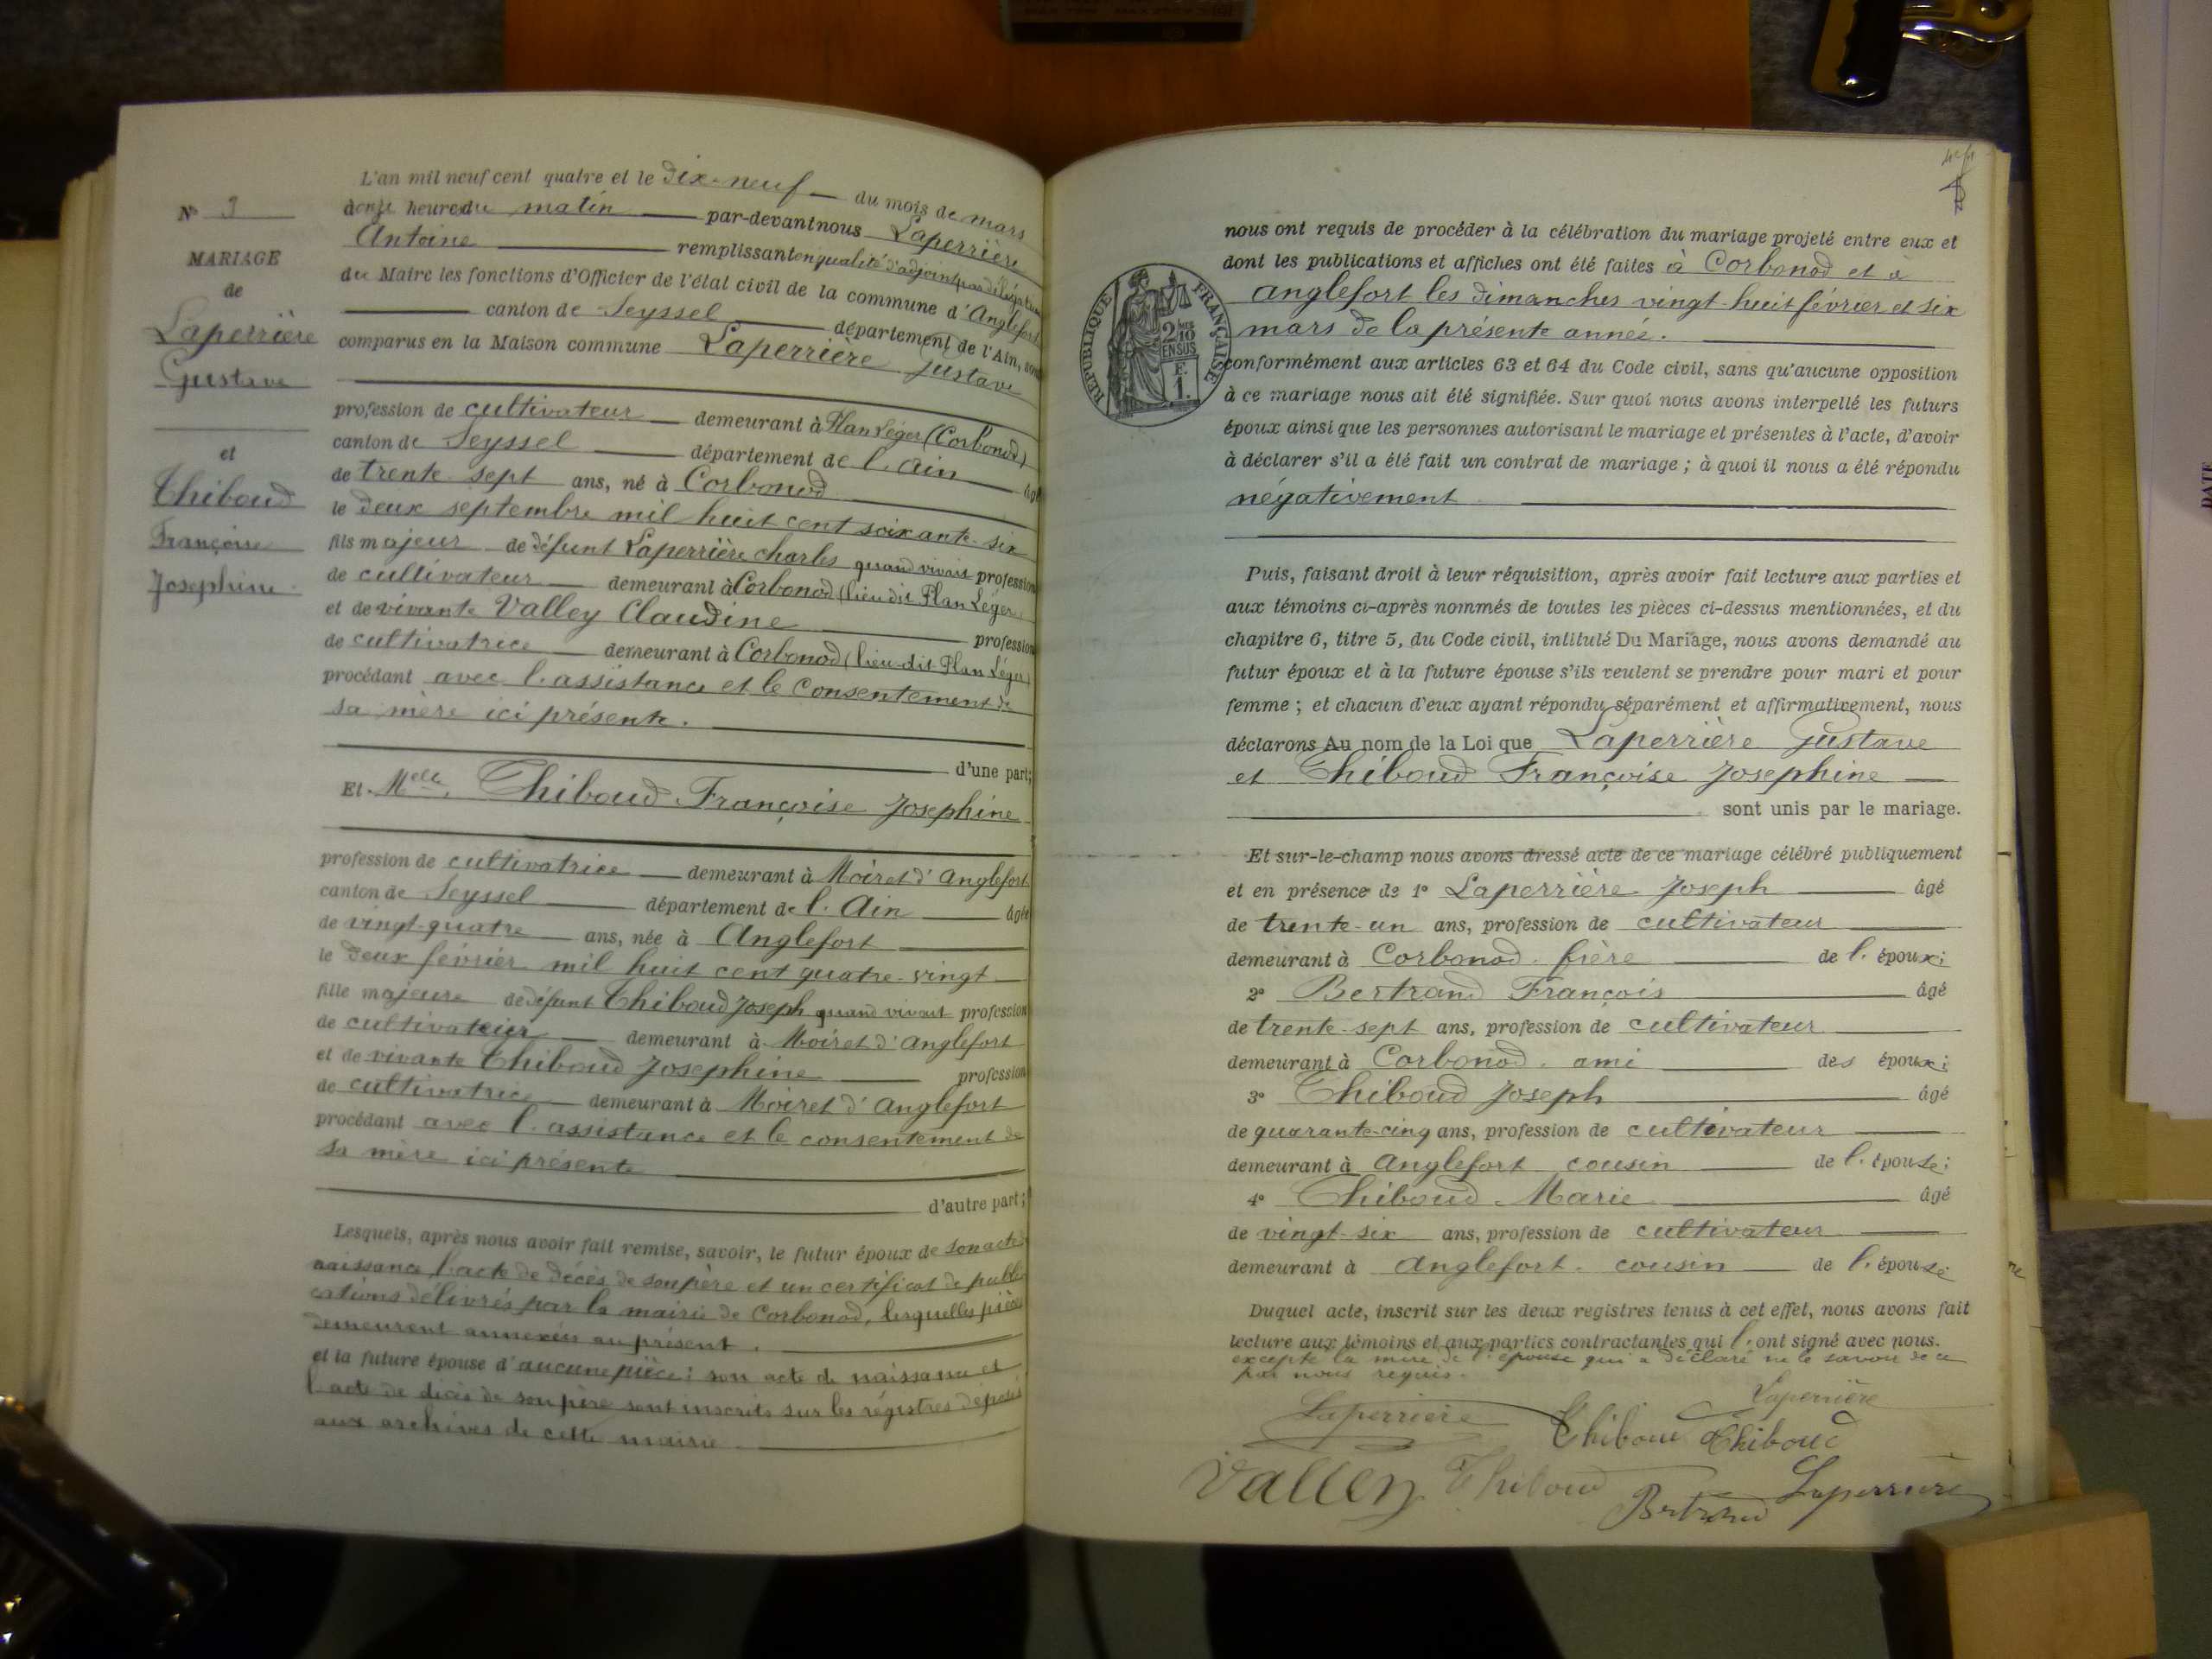 L'an mil neuf cent quatre et le dix-neuf du mois de mars
heures du matin par-devant nous Laperrière
Antoine remplissant en qualité d'adjoint par délégation
du Maire les fonctions d'Officier de l'état civil de la commune d'Anglefort
canton de Seyssel département de l'Ain, sont
comparus en la Maison commune Laperrière Gustave
profession de cultivateur demeurant à Plan Léger (Corbonod)
canton de Seyssel département de l'Ain âgé
de trente-sept ans, né à Corbonod
le deux septembre mil huit cent soixante-six
fils majeur de défunt Laperrière Charles quand vivait profession
de cultivateur demeurant à Corbonod (lieu dit Plan Léger)
et de vivante Valley Claudine profession
de cultivatrice demeurant à Corbonod (lieu-dit Plan Léger)
procédant avec l'assistance et le consentement de
sa mère ici présente.
d'une part;
Et Melle Thiboud Françoise Josephine
profession de cultivatrice demeurant à Moiret d'Anglefort
canton de Seyssel département de l'Ain âgée
de vingt-quatre ans, née à Anglefort
le deux février mil huit cent quatre-vingt
fille majeure de défunt Thiboud Joseph quand vivait profession
de cultivateur demeurant à Moiret d'Anglefort
et de vivante Thiboud Josephine profession
de cultivatrice demeurant à Moiret d'Anglefort
procédant avec l'assistance et le consentement de
sa mère ici présente
d'autre part;
Lesquels, après nous avoir fait remise, savoir, le futur époux de son acte
naissance, l'acte de décès de son père et un certificat de publi
cations délivrés par la mairie de Corbonod, lesquelles pièces
demeurent annexées au présent.
et la future épouse d'aucune pièce: son acte de naissance et
l'acte de décès de son père sont inscrits sur les régistres déposés
aux archives de cette mairie
N° 9
MARIAGE
de
Laperrière
Gustave
et
Thiboud
Françoise
Josephine
nous ont requis de procéder à la célébration du mariage projeté entre eux et
dont les publications et affiches ont été faites à Corbonod et à
Anglefort les dimanches vingt-huit février et six
mars de la présente année.
REPUBLIQUE FRANÇAISE
2 10
EN SUS
F.
1.
conformément aux articles 63 et 64 du Code civil, sans qu'aucune opposition
à ce mariage nous ait été signifiée. Sur quoi nous avons interpellé les futurs
époux ainsi que les personnes autorisant le mariage et présentes à l'acte, d'avoir
à déclarer s'il a été fait un contrat de mariage; à quoi il nous a été répondu
négativement
Puis, faisant droit à leur réquisition, après avoir fait lecture aux parties et
aux témoins ci-après nommés de toutes les pièces ci-dessus mentionnées, et du
chapitre 6, titre 5, du Code civil, intitulé Du Mariage, nous avons demandé au
futur époux et à la future épouse s'ils veulent se prendre pour mari et pour
femme; et chacun d'eux ayant répondu séparément et affirmativement, nous
déclarons Au nom de la Loi que Laperrière Gustave
et Thiboud Françoise Josephine
sont unis par le mariage.
Et sur-le-champ nous avons dressé acte de ce mariage célébré publiquement
et en présence de 1° Laperrière Joseph âgé
de trente-un ans, profession de cultivateur
demeurant à Corbonod. frère de l'époux;
2° Bertrand François âgé
de trente-sept ans, profession de cultivateur
demeurant à Corbonod. ami des époux;
3° Thiboud Joseph âgé
de quarante-cinq ans, profession de cultivateur
demeurant à Anglefort cousin de l'épouse;
4° Thiboud Marie âgé
de vingt-six ans, profession de cultivateur
demeurant à Anglefort. cousin de l'épouse
Duquel acte, inscrit sur les deux registres tenus à cet effet, nous avons fait
lecture aux témoins et aux parties contractantes qui l'ont signé avec nous.
excepte la mère de l'épouse qui a déclaré ne le savoir de ce
par nous requis.
Laperriere Laperrière
Thiboud Thiboud
Valley Thiboud Bertrand Laperrière
DATE